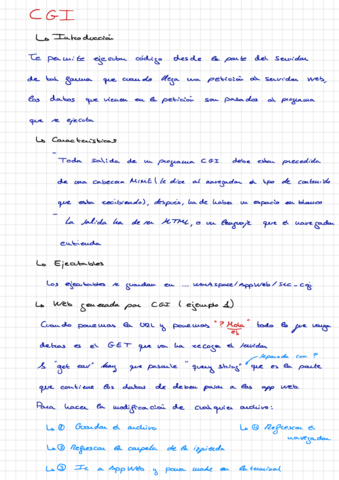 CGI
↳ Introducción
Te permite ejecutar código desde la parte del servidor
de tal forma que cuando llega una petición al servidor web,
los datos que vienen en la petición son pasados al programa
que se ejecuta
↳ Características
- Toda salida de un programa CGI debe estar precedida
de una cabecera MIME (le dice al navegador el tipo de contenido
que está recibiendo), después, ha de haber un espacio en blanco
- La salida ha de ser HTML, o un lenguaje que el navegador
entienda
↳ Ejecutables
Los ejecutables se guardan en ... workspace/AppWeb/src_cgi
↳ Web generada por CGI (ejemplo 1)
Cuando ponemos la URL y ponemos "? Hola" todo lo que venga
detrás es el GET que va ha recoger el servidor
separada con ?
↳ "get env" hay que pasarle "query string" que es la parte
que contiene los datos de deben pasar a las app web
Para hacer la modificación de cualquier archivo:
↳ ① Guardar el archivo
↳ ④ Refrescar el navegador
↳ ② Refrescar la carpeta de la izquierda
↳ ③ Ir a AppWeb y poner make en la terminal